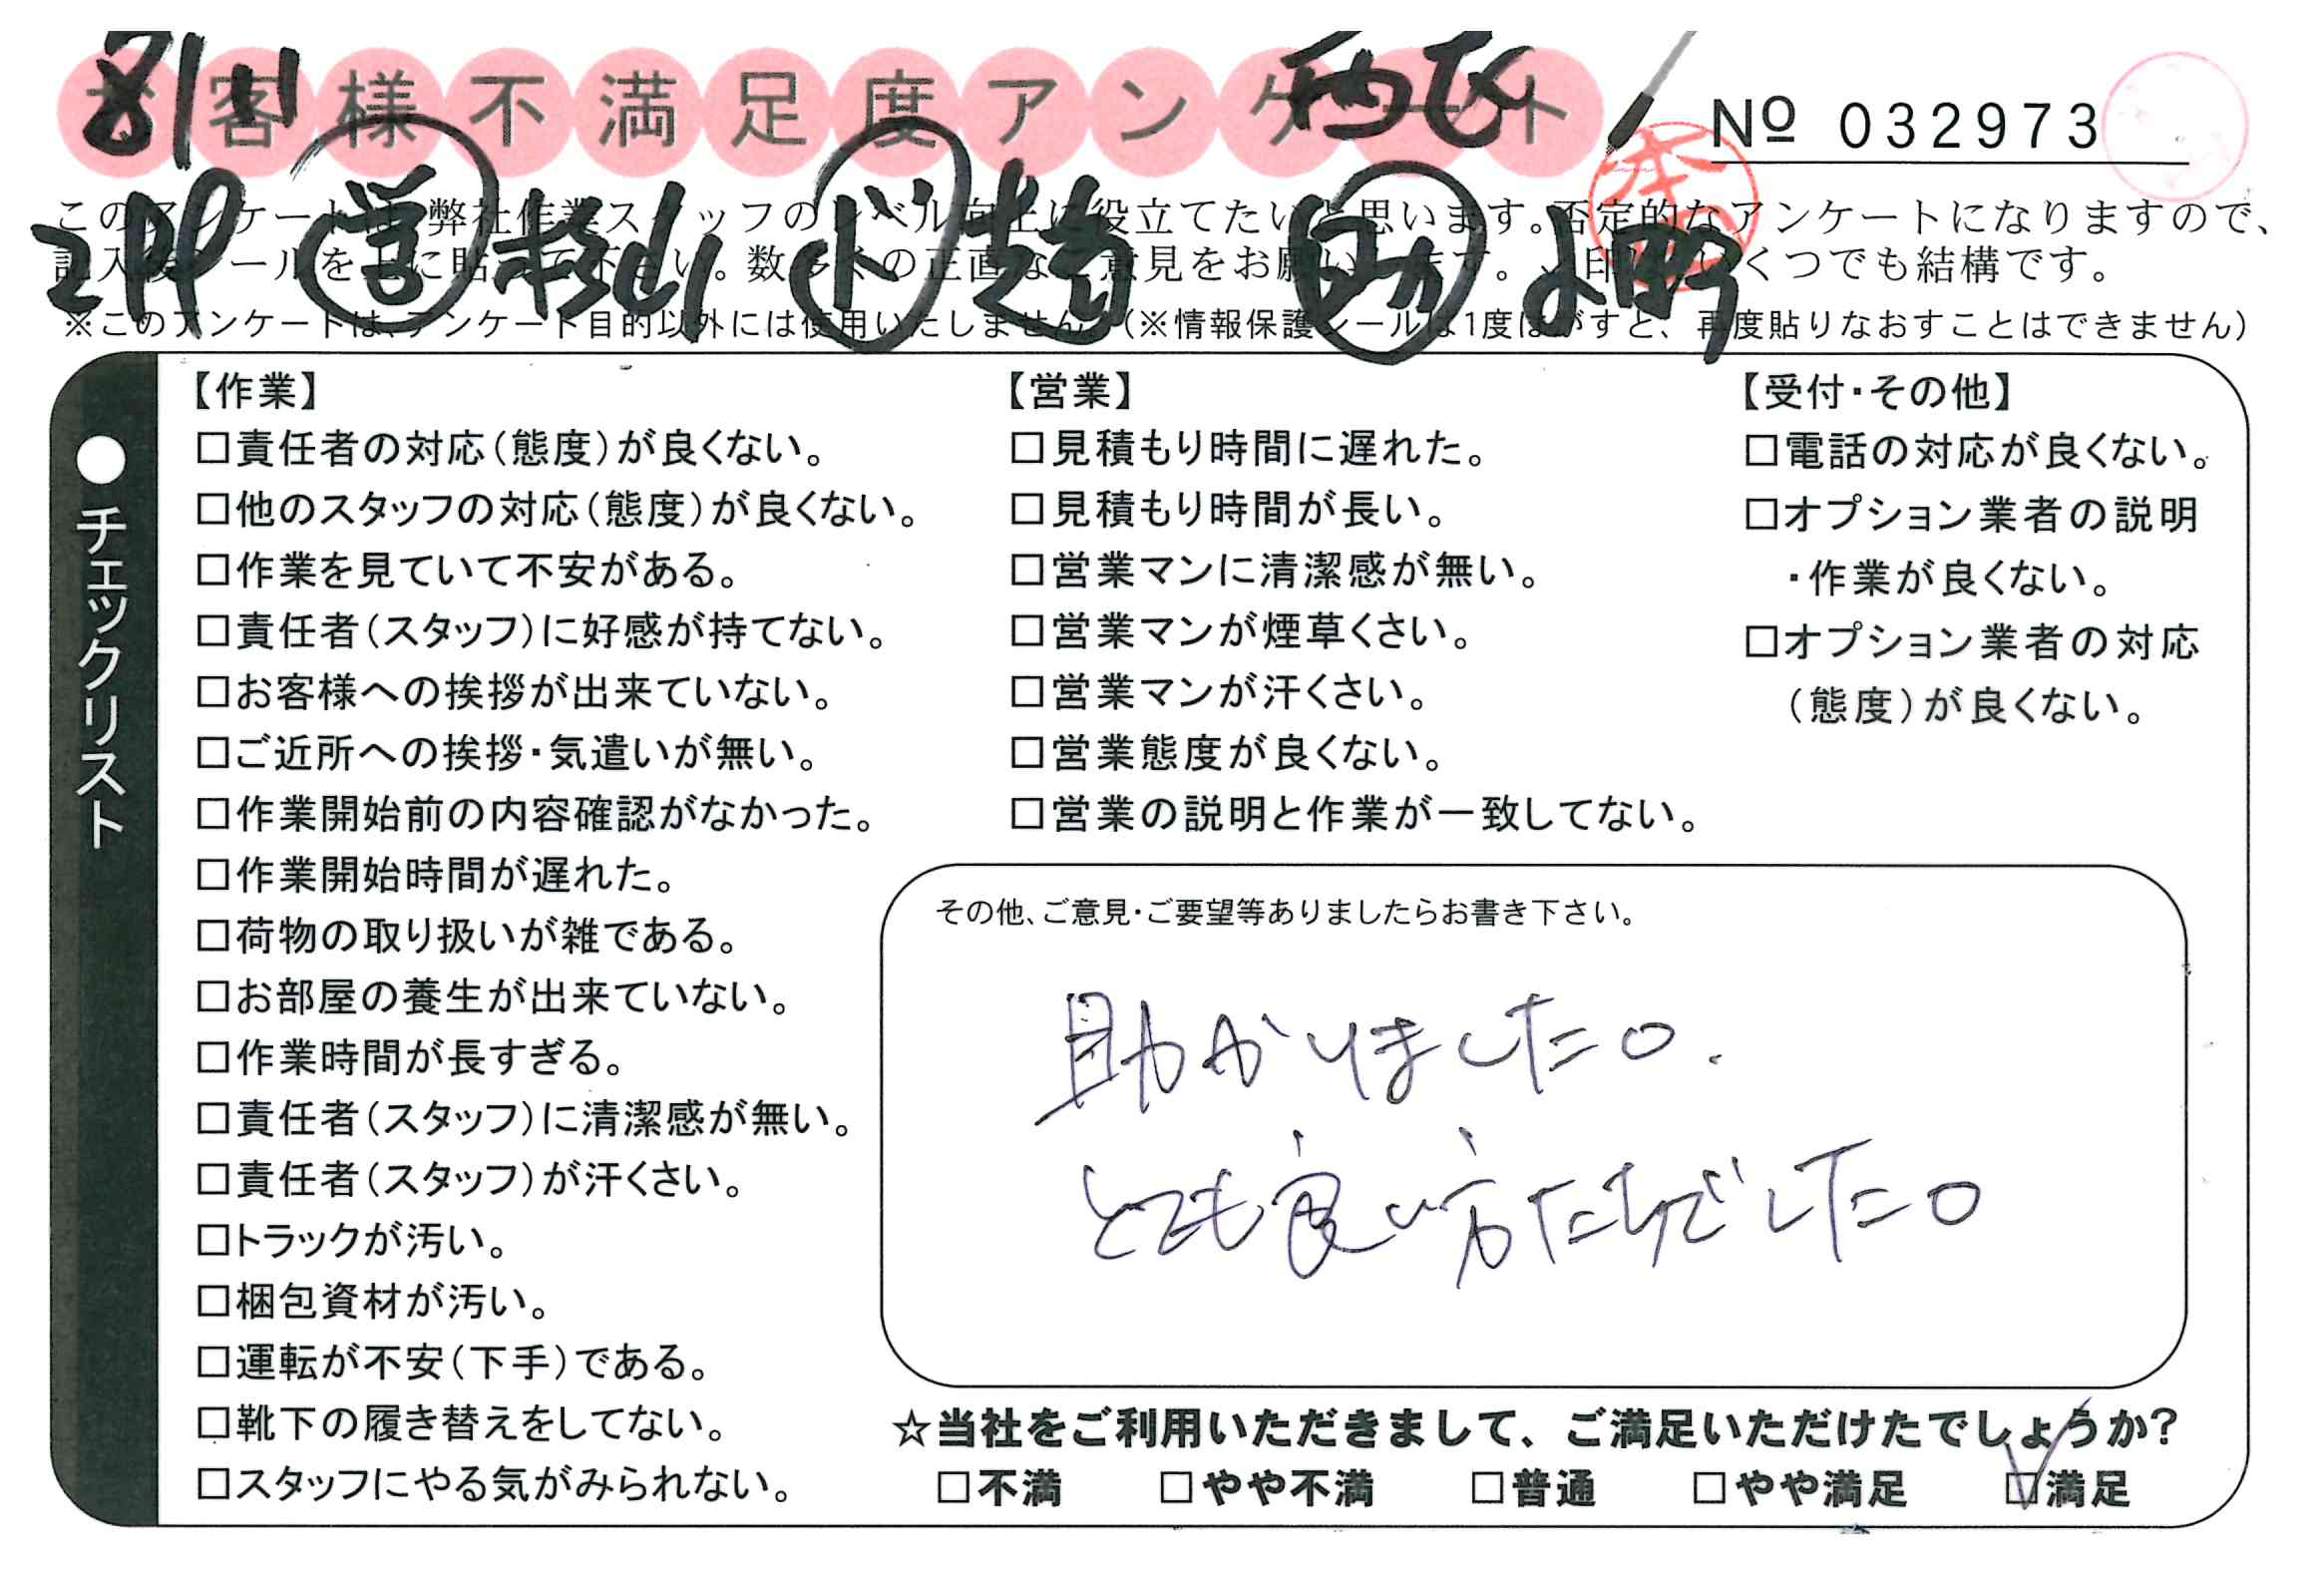 お客様不満足度アンケート
8/11
№ 032973
このアンケートは、弊社作業スタッフのレベル向上に役立てたいと思います。否定的なアンケートになりますので、
記入後シールを上に貼って下さい。数多くの正直なご意見をお願いします。✓印はいくつでも結構です。
※このアンケートは、アンケート目的以外には使用いたしません。(※情報保護シールは1度はがすと、再度貼りなおすことはできません)
営 杉山 ド 趙 助 上野
●チェックリスト
【作業】
□責任者の対応(態度)が良くない。
□他のスタッフの対応(態度)が良くない。
□作業を見ていて不安がある。
□責任者(スタッフ)に好感が持てない。
□お客様への挨拶が出来ていない。
□ご近所への挨拶・気遣いが無い。
□作業開始前の内容確認がなかった。
□作業開始時間が遅れた。
□荷物の取り扱いが雑である。
□お部屋の養生が出来ていない。
□作業時間が長すぎる。
□責任者(スタッフ)に清潔感が無い。
□責任者(スタッフ)が汗くさい。
□トラックが汚い。
□梱包資材が汚い。
□運転が不安(下手)である。
□靴下の履き替えをしてない。
□スタッフにやる気がみられない。
【営業】
□見積もり時間に遅れた。
□見積もり時間が長い。
□営業マンに清潔感が無い。
□営業マンが煙草くさい。
□営業マンが汗くさい。
□営業態度が良くない。
□営業の説明と作業が一致してない。
【受付・その他】
□電話の対応が良くない。
□オプション業者の説明
・作業が良くない。
□オプション業者の対応
(態度)が良くない。
その他、ご意見・ご要望等ありましたらお書き下さい。
助かりました。
とても良い方たちでした。
☆当社をご利用いただきまして、ご満足いただけたでしょうか?
□不満 □やや不満 □普通 □やや満足 ☑満足